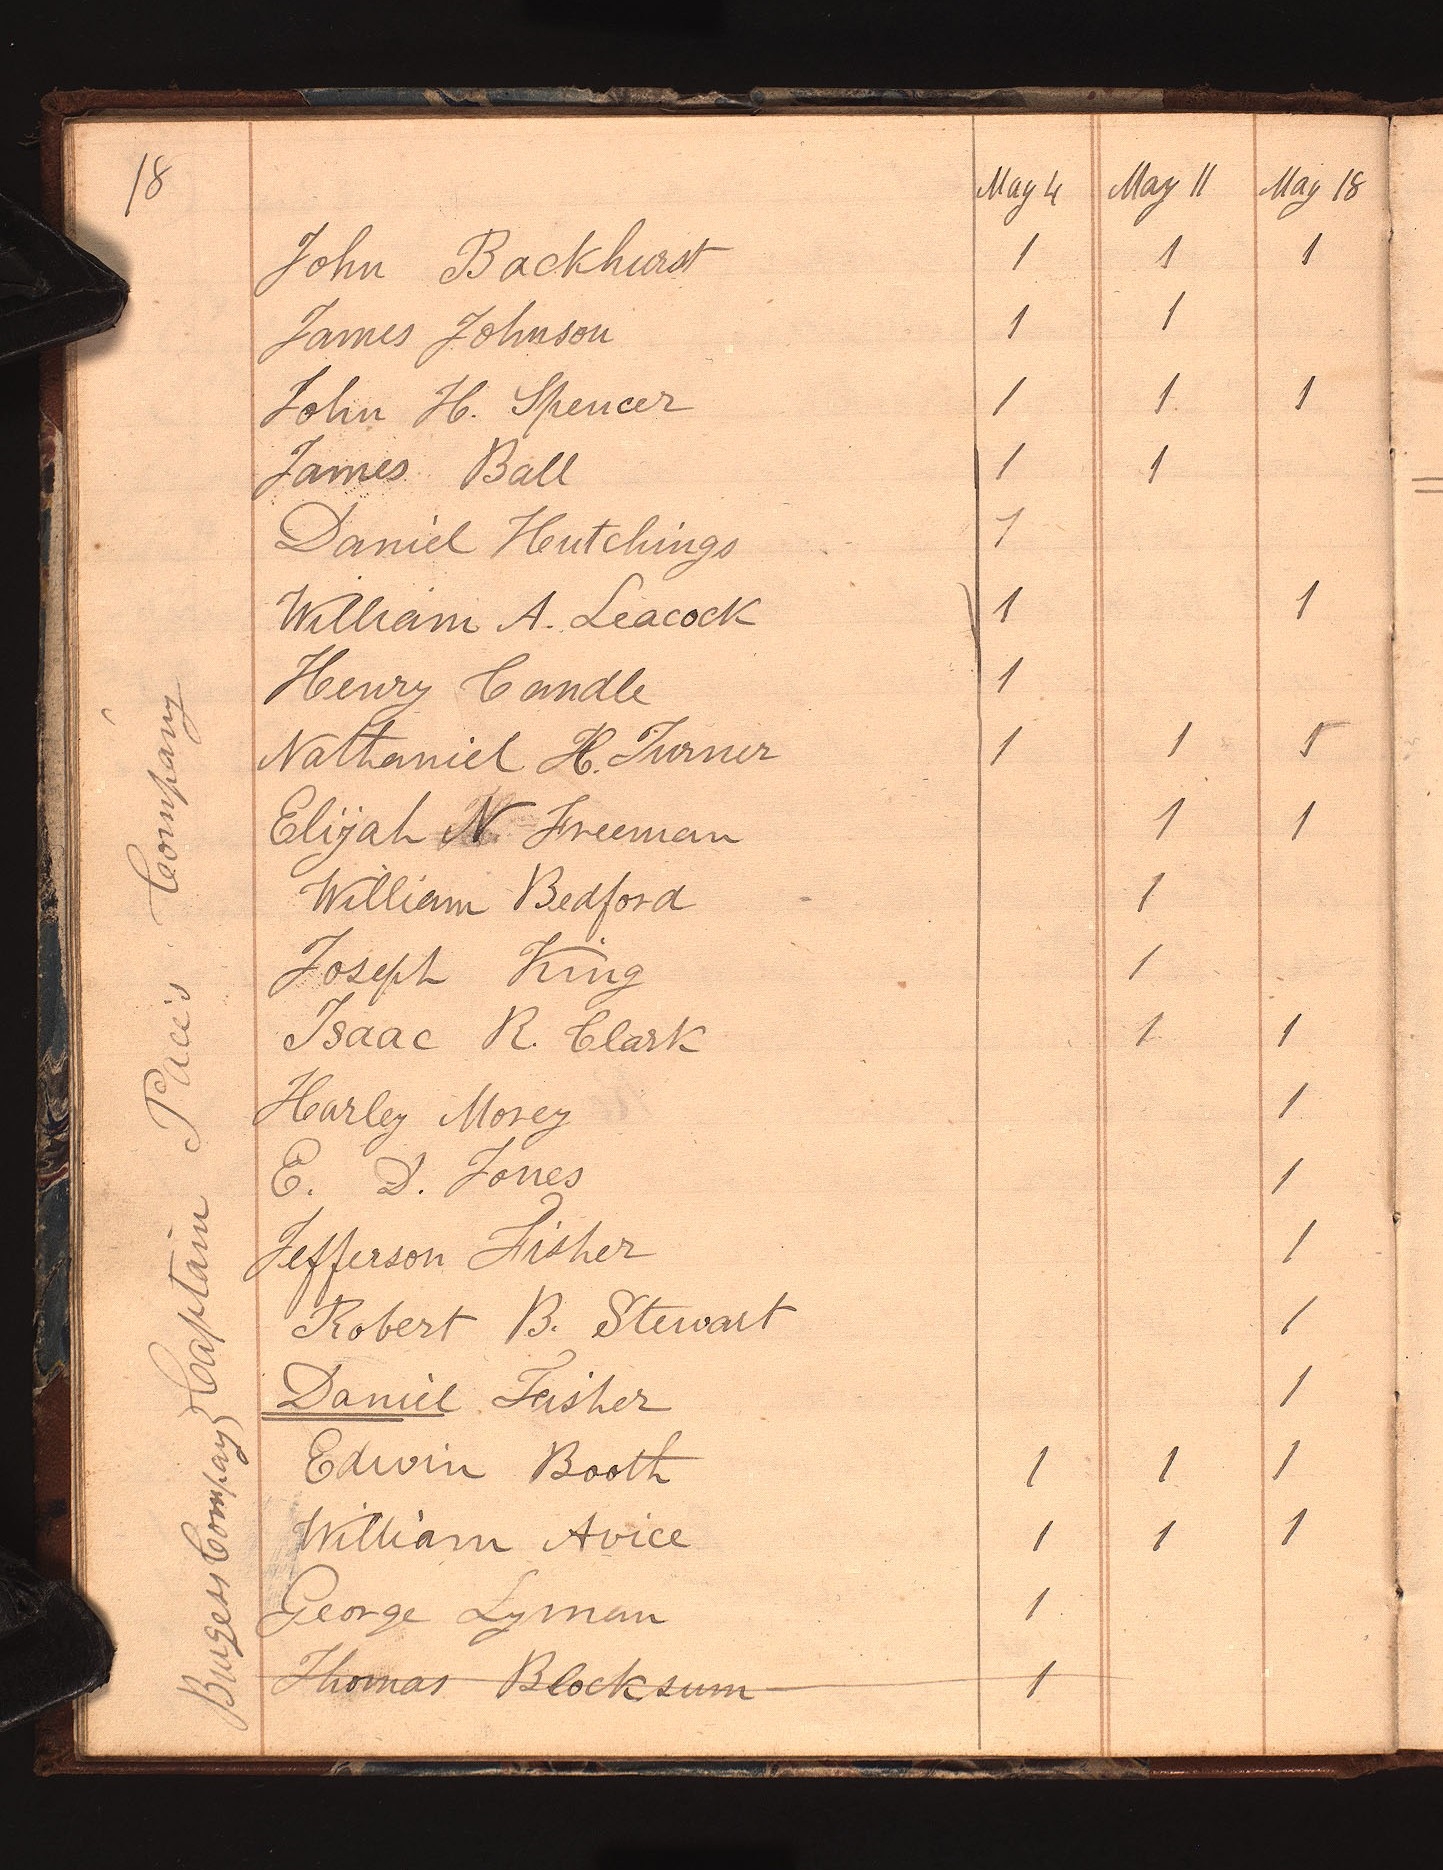 18
May 4 May 11 May 18
John Backhurst 1 1 1
James Johnson 1 1
John H. Spencer 1 1 1
James Ball 1 1
Daniel Hutchings 1
William A. Leacock 1 1
Henry Candle 1
Nathaniel H. Turner 1 1 1
Elijah N Freeman 1 1
William Bedford 1
Joseph King 1
Isaac R. Clark 1 1
Harley Morey 1
E. D. Jones 1
Jefferson Fisher 1
Robert B. Stewart 1
Daniel Fisher 1
Edwin Booth 1 1 1
William Avice 1 1 1
George Lyman 1
Thomas Blocksum 1
Captain Pace's Company
Burgess Company